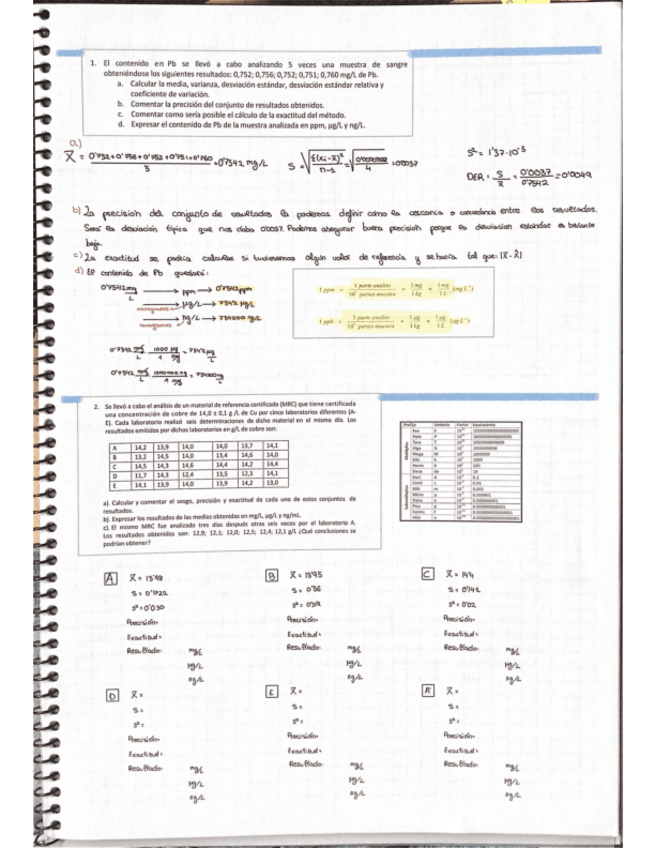 1. El contenido en Pb se llevó a cabo analizando 5 veces una muestra de sangre
obteniéndose los siguientes resultados: 0,752; 0,756; 0,752; 0,751; 0,760 mg/L de Pb.
a. Calcular la media, varianza, desviación estándar, desviación estándar relativa y
coeficiente de variación.
b. Comentar la precisión del conjunto de resultados obtenidos.
c. Comentar como sería posible el cálculo de la exactitud del método.
d. Expresar el contenido de Pb de la muestra analizada en ppm, µg/L y ng/L.
a)
X̄ = 0'752+0'756+0'752+0'751+0'760 / 5 = 0'7542 mg/L
S = √ Σ(xi-x̄)² / n-1
= 0'0037
S² = 1'37·10⁻⁵
DER = S / x̄ = 0'0037 / 0'7542 = 0'0049
b) La precisión del conjunto de resultados la podemos definir como la cercanía o concordancia entre los resultados.
Sería la desviación típica que nos daba 0'0037. Podemos asegurar buena precisión porque la desviación estándar es bastante
baja.
c) La exactitud se podría calcular si tuviéramos algún valor de referencia y se haría tal que: |X-X̂|
d) El contenido de Pb quedaría:
0'7542 mg / L → ppm → 0'7542 ppm
→ µg/L → 754'2 µg/L
microgramos
→ ng/L → 754200 ng/L
nanogramos
1 ppm = 1 parte analito / 10⁶ partes muestra = 1 mg / 1 kg = 1 mg / 1 L (mg L⁻¹)
1 ppb = 1 parte analito / 10⁹ partes muestra = 1 µg / 1 kg = 1 µg / 1 L (µg L⁻¹)
0'7542 mg / L · 1000 µg / 1 mg = 754'2 µg / L
2. Se llevó a cabo el análisis de un material de referencia certificado (MRC) que tiene certificada
una concentración de cobre de 14,0 ± 0,1 g /L de Cu por cinco laboratorios diferentes (A-
E). Cada laboratorio realizó seis determinaciones de dicho material en el mismo día. Los
resultados emitidos por dichos laboratorios en g/L de cobre son:
A 14,2 13,9 14,0 14,0 13,7 14,1
B 13,2 14,5 14,0 13,4 14,6 14,0
C 14,5 14,3 14,6 14,4 14,2 14,4
D 11,7 14,3 12,4 13,5 12,3 14,1
E 14,1 13,9 14,0 13,9 14,2 13,0
a). Calcular y comentar el sesgo, precisión y exactitud de cada uno de estos conjuntos de
resultados.
b). Expresar los resultados de las medias obtenidas en mg/L, µg/L y ng/mL.
c). El mismo MRC fue analizado tres días después otras seis veces por el laboratorio A.
Los resultados obtenidos son: 12,9; 12,1; 12,0; 12,5; 12,4; 12,1 g/L ¿Qué conclusiones se
podrían obtener?
Prefijo Símbolo Factor Equivalente
A X̄ = 13'98
S = 0'1722
S² = 0'030
Precisión:
Exactitud:
Resultado: mg/L
µg/L
ng/L
B X̄ = 13'95
S = 0'56
Precisión:
Exactitud:
Resultado: mg/L
µg/L
ng/L
C X̄ = 14'4
S = 0'141
S² = 0'02
Precisión:
Exactitud:
Resultado: mg/L
µg/L
ng/L
D X̄ =
S =
S² =
Precisión:
Exactitud:
Resultado: mg/L
µg/L
ng/L
E X̄ =
S =
S² =
Precisión:
Exactitud:
Resultado: mg/L
µg/L
ng/L
A' X̄ =
S =
S² =
Precisión:
Exactitud:
Resultado: mg/L
µg/L
ng/L